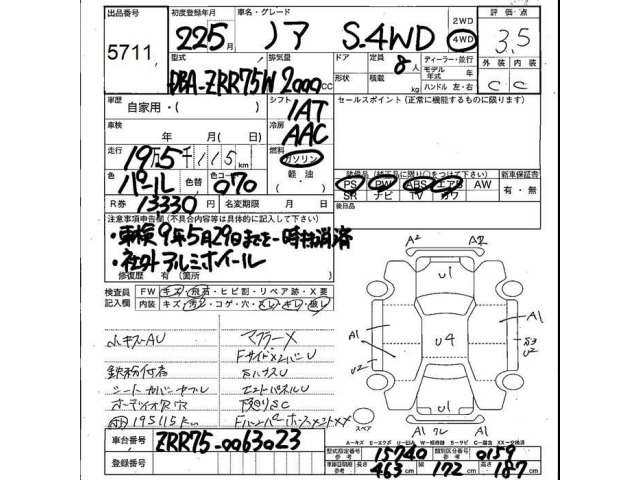 出品番号 初度登録年月 車名・グレード ドア 2WD 評価点
5711 225月 ノア S.4WD 4WD 3.5
型式 排気量 定員 ディーラー・並行 外装 内装
DBA-ZRR75W 2000cc 形状 積載 8人 kg モデル年式 年 ハンドル 左・右 C C
車歴 自家用・( ) シフト 1AT セールスポイント(正常に機能するものに限ります)
車検 年 月( 日) 冷房 AAC
走行 19万5千115km 燃料 ガソリン
軽油
色 パール 色替 色コード 070 装備品(純正品に限り○をつけて下さい) 新車保証書
PS PW ABS エアB AW 有・無
SR ナビ TV カワ
R券 13330円 名変期限 月 日 後日品
注意事項申告欄(不具合内容等は具体的に記入して下さい)
・車検9年5月29日まで一時抹消済
・社外アルミホイール
修復歴 有(箇所 )
検査員記入欄 FW キズ・飛石・ヒビ割・リペア跡・X要
内装 キズ・汚レ・コゲ・穴・スレ・キレ・破レ
小キズAU マフラーX
鉄粉付着
シートカバー
195115km
車台番号 ZRR75-0063023
登録番号
A2 A2
U1
A1 A1
U4
U2 U2
U1
A1 A1
スペア
A-キズ E-エクボ U-凹ミ W-補修跡 S-サビ C-腐食 XX-交換済
型式指定番号 参考 15740 類別区分番号 参考 0159
車庫証明用 参考 長さ 463cm 幅 172cm 高さ 187cm